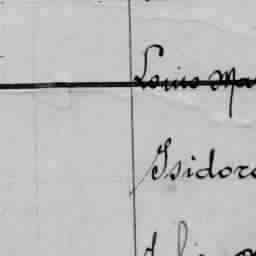 Louis Ma
Isidor